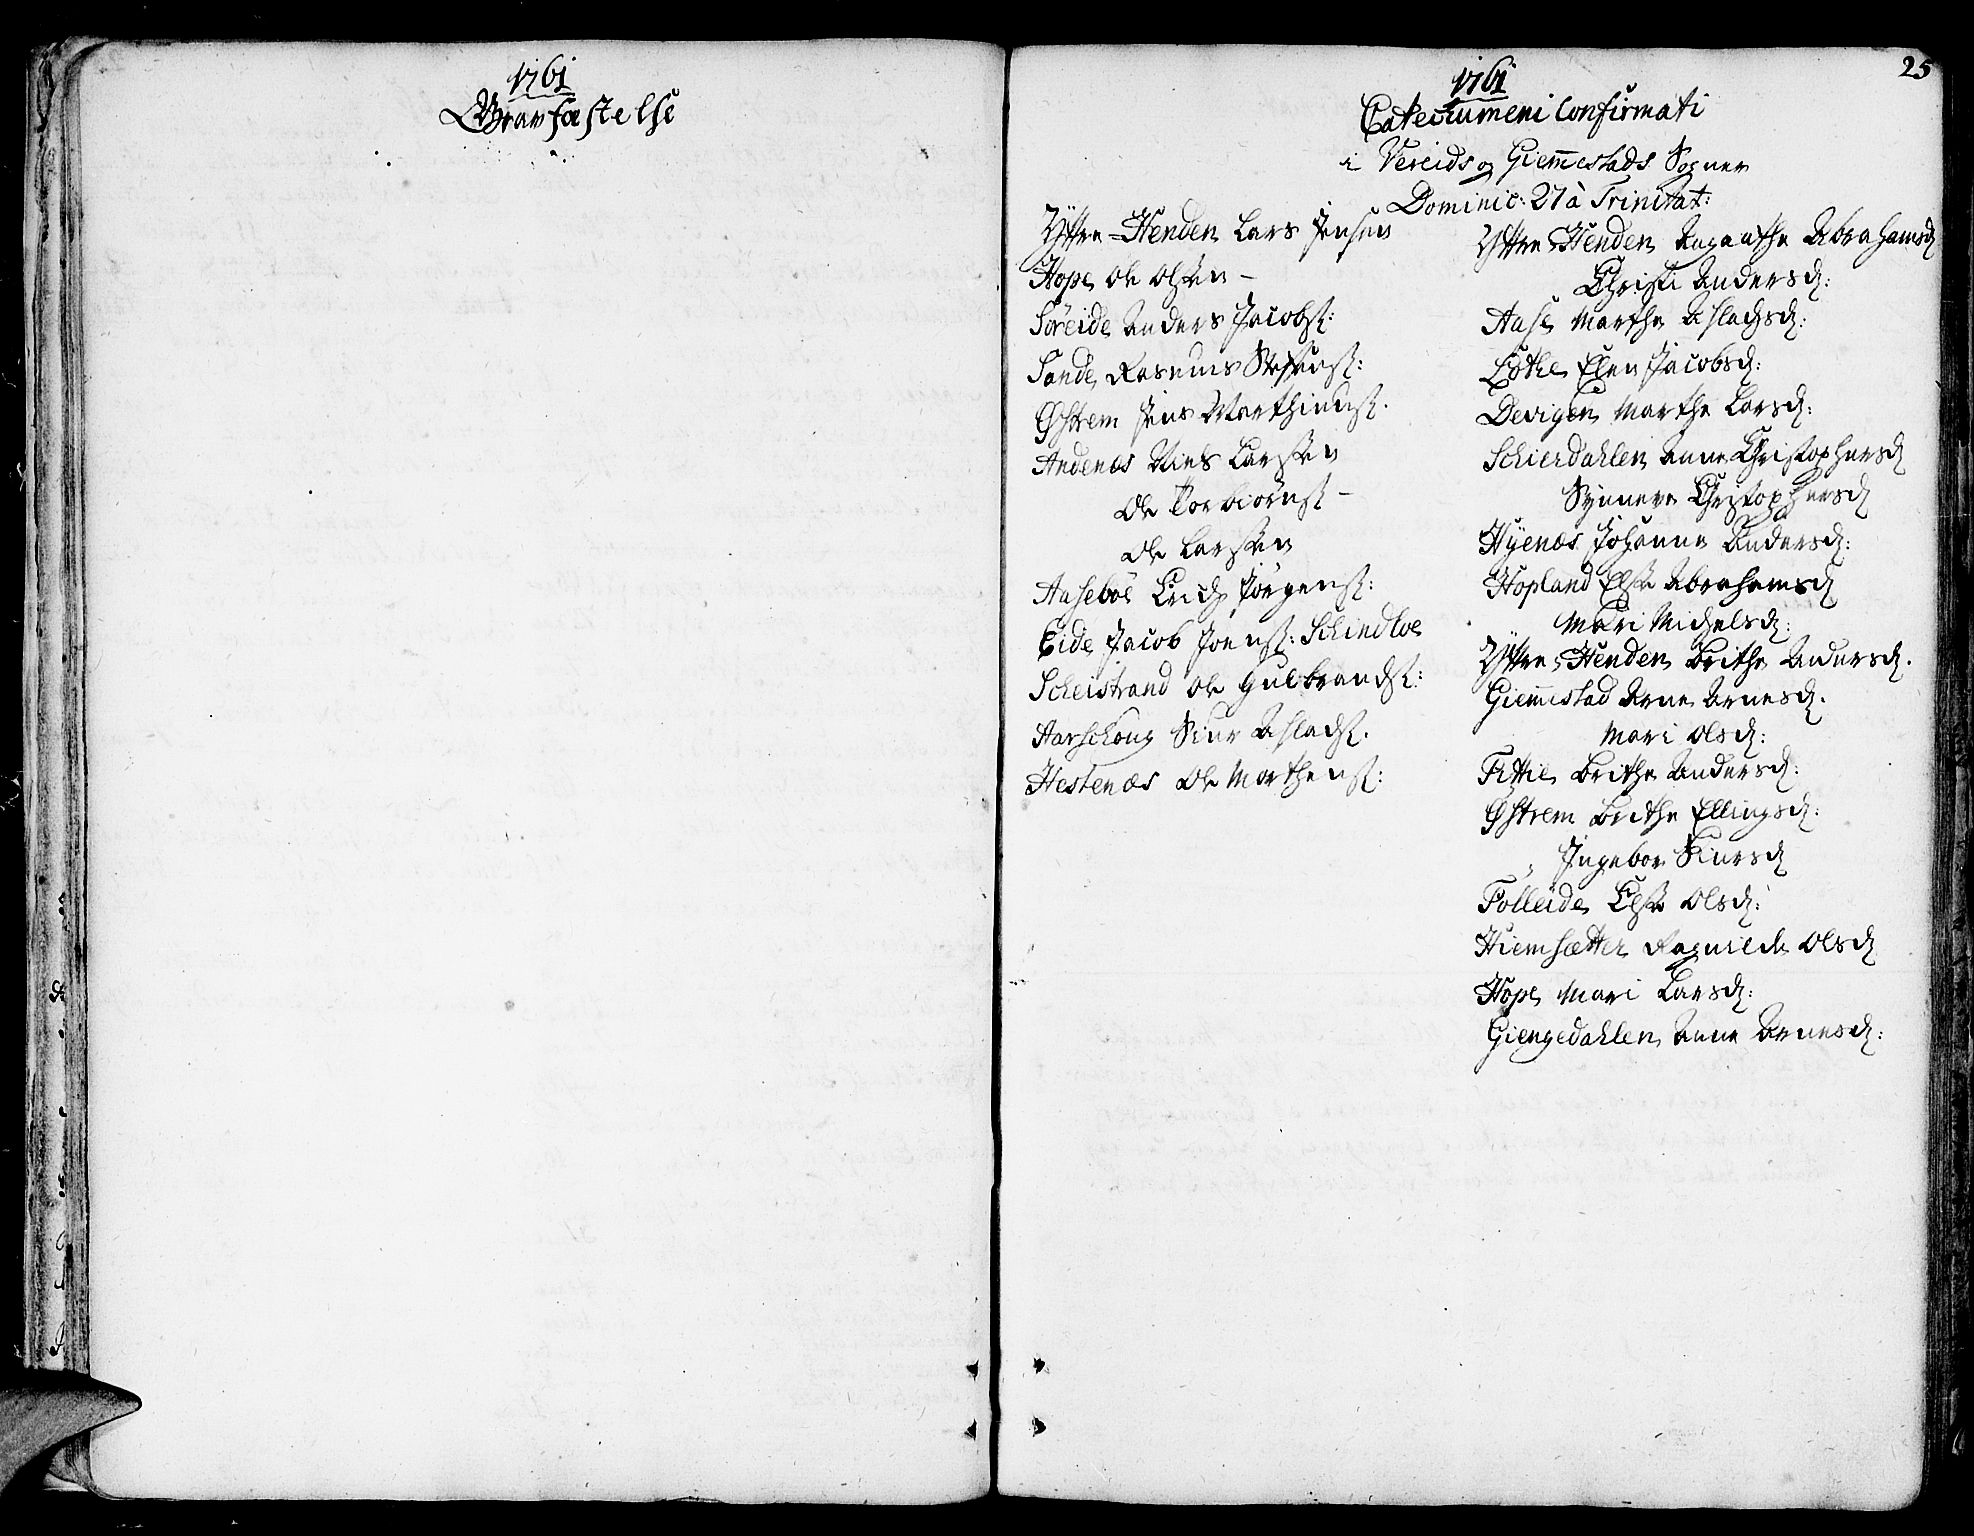 1761
Gravfæstelse
25
1761
Catechumeni Confirmati
i Vereids og Giem̄estads Sogner
Dominic: 27 à Trinitat:
Ÿttre-Henden Lars Jensen
Hope Ole Olsen -
Söreide Anders Jacobs:
Sande Rasmus Stefens:
Østrem Jens Marthinus.
Andenæs Niels Larsen
Ole Torbiörns -
Ole Larsen
Aaseböe Erich Jörgens:
Eide Jacob Joens: Schindloe
Scheistrand Ole Gulbrands:
Aarschoug Siur Aslads.
Hestenæs Ole Marthens:
Ÿttre Henden Angenthe Abrahamsd
Christi Andersd:
Aase Marthe Aslachsd:
Lothe Elen Jacobsd:
Devigen Marthe Larsd:
Schierdahlen Anne Christophersd
Synneve Christophersd
Hÿenæs Johanne Andersd:
Hopland Else Abrahamsd
Mari Michelsd:
Ÿttre Henden Brithe Andersd.
Giem̄estad Arne Arnesd.
Mari Olsd:
Fittie Brithe Andersd:
Østrem Brithe Ellingsd:
Ingebor Siursd
Folleide Else Olsd:
Hiemsætter Ragnilde Olsd
Hope Mari Larsd:
Giengedahlen Anne Arnesd: